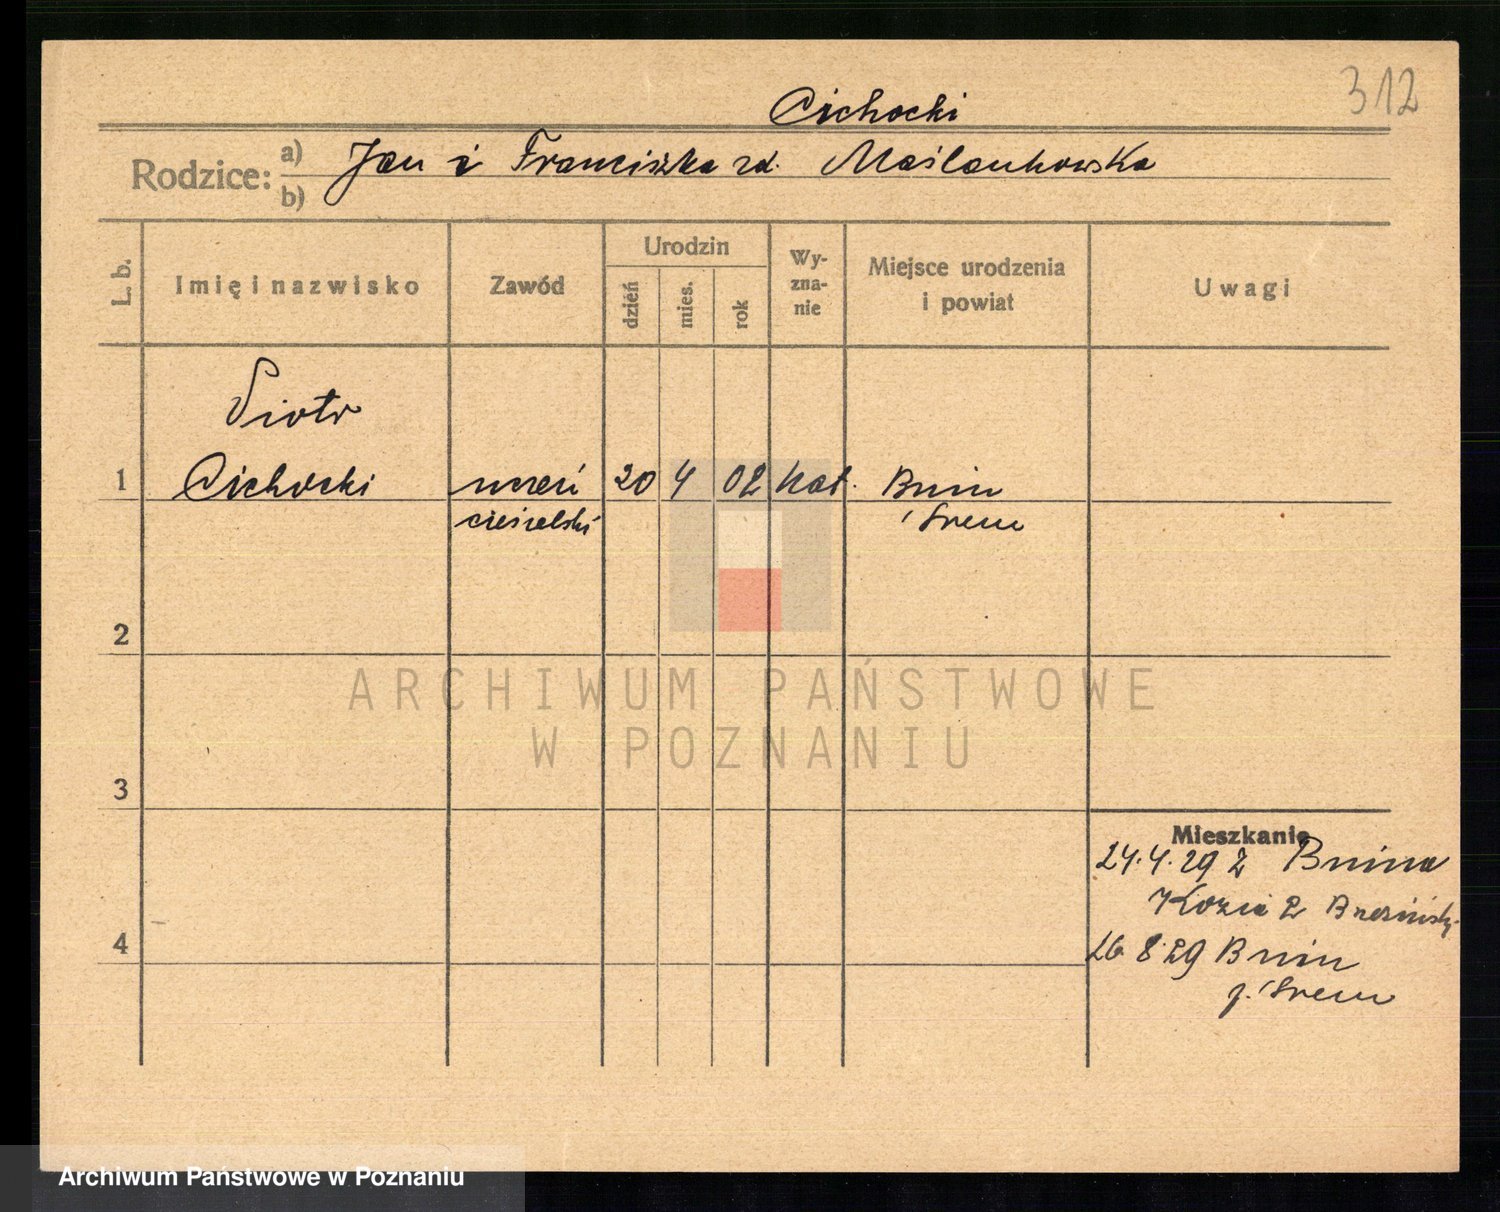 312
Cichocki
Rodzice: a) b) Jan i Franciszka zd. Maślankowska
L. b. Imię i nazwisko Zawód Urodzin dzień mies. rok Wyznanie Miejsce urodzenia i powiat Uwagi
Piotr
1 Cichocki uczeń 20 4 02 kat. Bnin
ciesielski Śrem
2
ARCHIWUM PAŃSTWOWE
W POZNANIU
3
Mieszkanie
24.4.29 z Bnina
Kozia 2
4
26 8 29 Bnin
p. Śrem
Archiwum Państwowe w Poznaniu